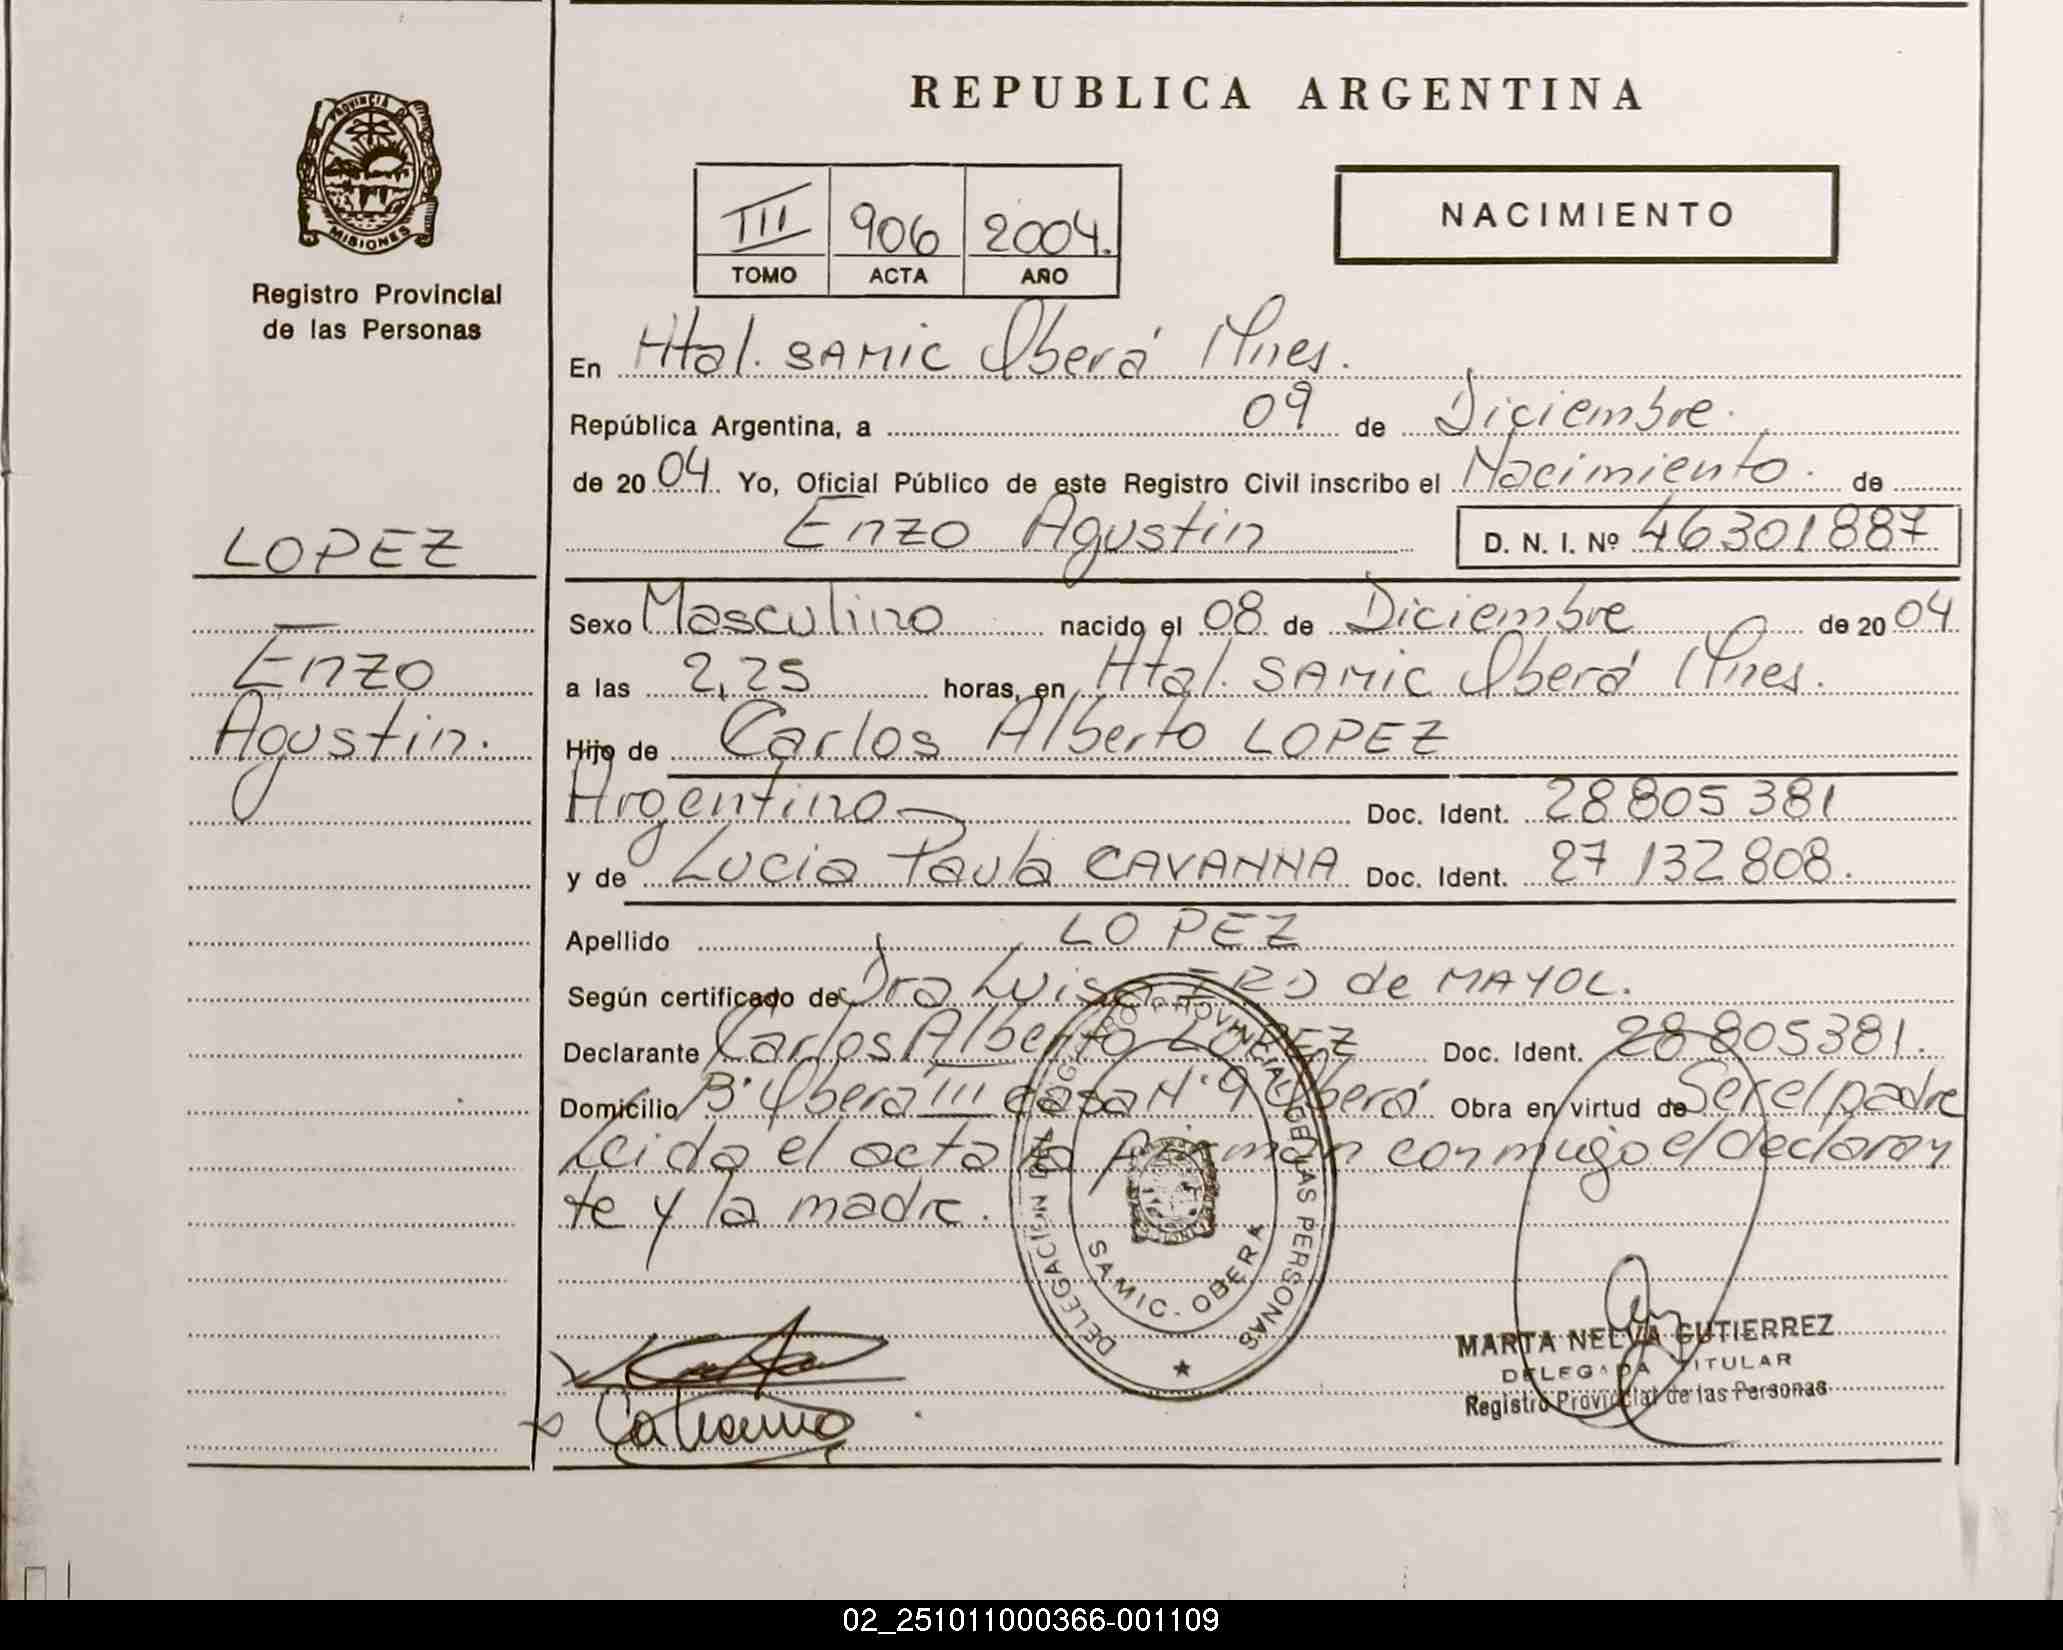 PROVINCIA DE
MISIONES
Registro Provincial
de las Personas
LOPEZ
Enzo
Agustin.
REPUBLICA ARGENTINA
III 906 2004.
TOMO ACTA AÑO
NACIMIENTO
En Htal. SAMIC Oberá Mnes.
República Argentina, a 09 de Diciembre.
de 20 04. Yo, Oficial Público de este Registro Civil inscribo el Nacimiento. de
Enzo Agustin D. N. I. Nº 46301887
Sexo Masculino nacido el 08 de Diciembre de 20 04
a las 2,25 horas, en Htal. SAMIC Oberá Mnes.
Hijo de Carlos Alberto LOPEZ
Argentino Doc. Ident. 28 805 381
y de Lucia Paula CAVANNA Doc. Ident. 27 132 808.
Apellido LOPEZ
Según certificado de Dra Luisa de MAYOL.
Declarante Carlos Alberto LOPEZ Doc. Ident. 28 805381.
Domicilio B° Oberá III casa N° 9 Oberá Obra en virtud de Ser el padre
Leida el acta la firman conmigo el declaran
te y la madre.
DELEGACION DEL REGISTRO PROVINCIAL DE LAS PERSONAS
SAMIC - OBERA
Cavanna
MARTA NELVA GUTIERREZ
DELEGADA TITULAR
Registro Provincial de las Personas
02_251011000366-001109